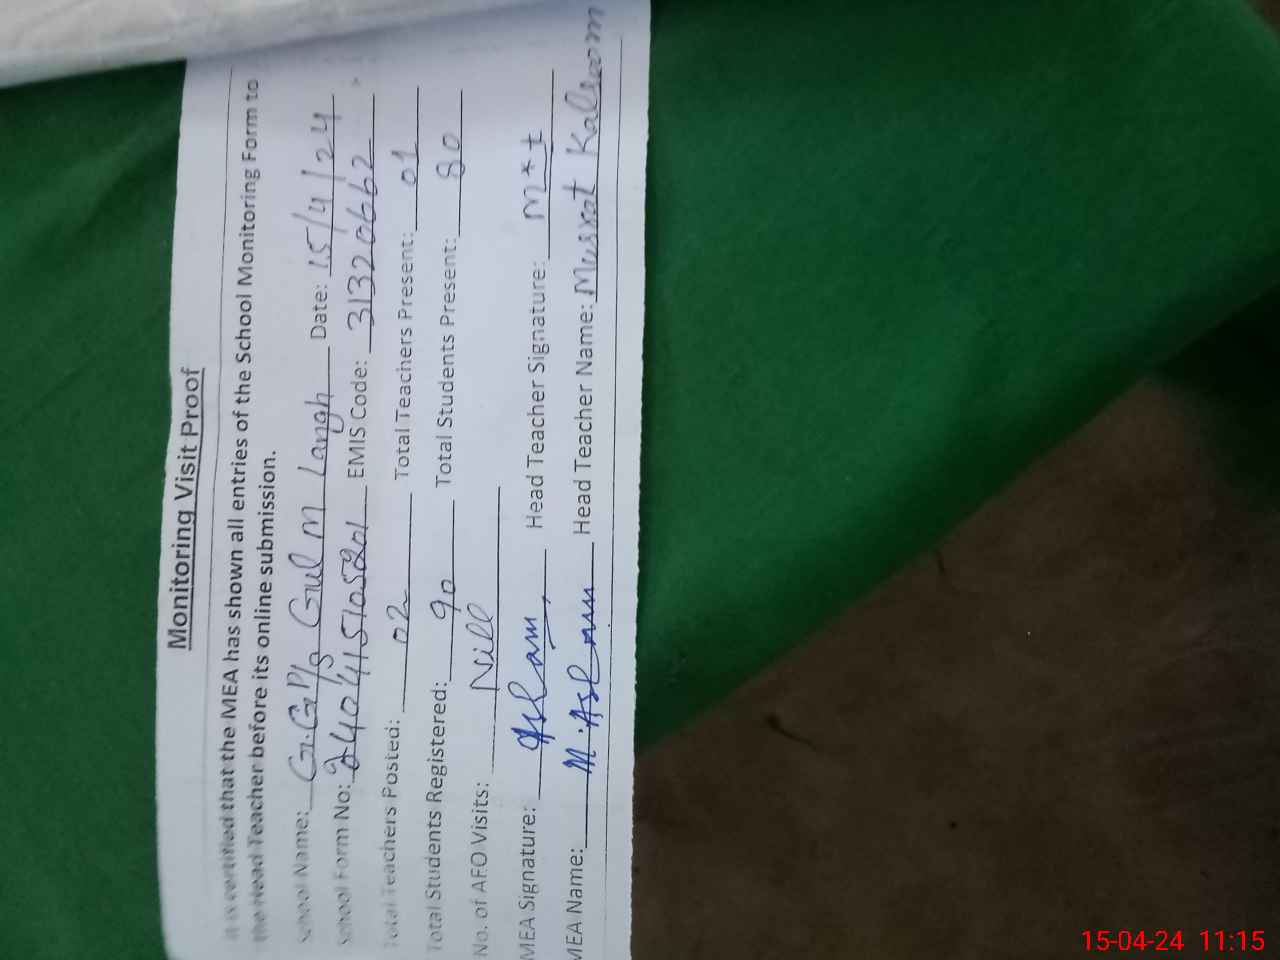 Monitoring Visit Proof
It is certified that the MEA has shown all entries of the School Monitoring Form to
the Head Teacher before its online submission.
School Name: G.GP/S Gul M Langh Date: 15/4/24
School Form No: EMIS Code: 31320662
Total Teachers Posted: 02 Total Teachers Present: 01
Total Students Registered: 90 Total Students Present: 80
No. of AEO Visits: Nill
MEA Signature: Aslam Head Teacher Signature: M**t
MEA Name: M.Aslam Head Teacher Name: Musrat Kalsoom
15-04-24 11:15